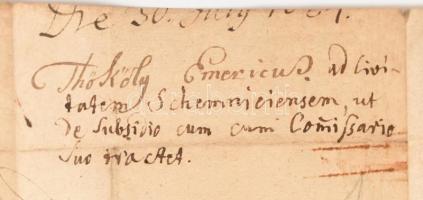 Die 30. July
Thököly Emericus ad Civi-
tatem Schemniciensem, ut
de Subsidio cum cum Com̄issario
suo tractet.